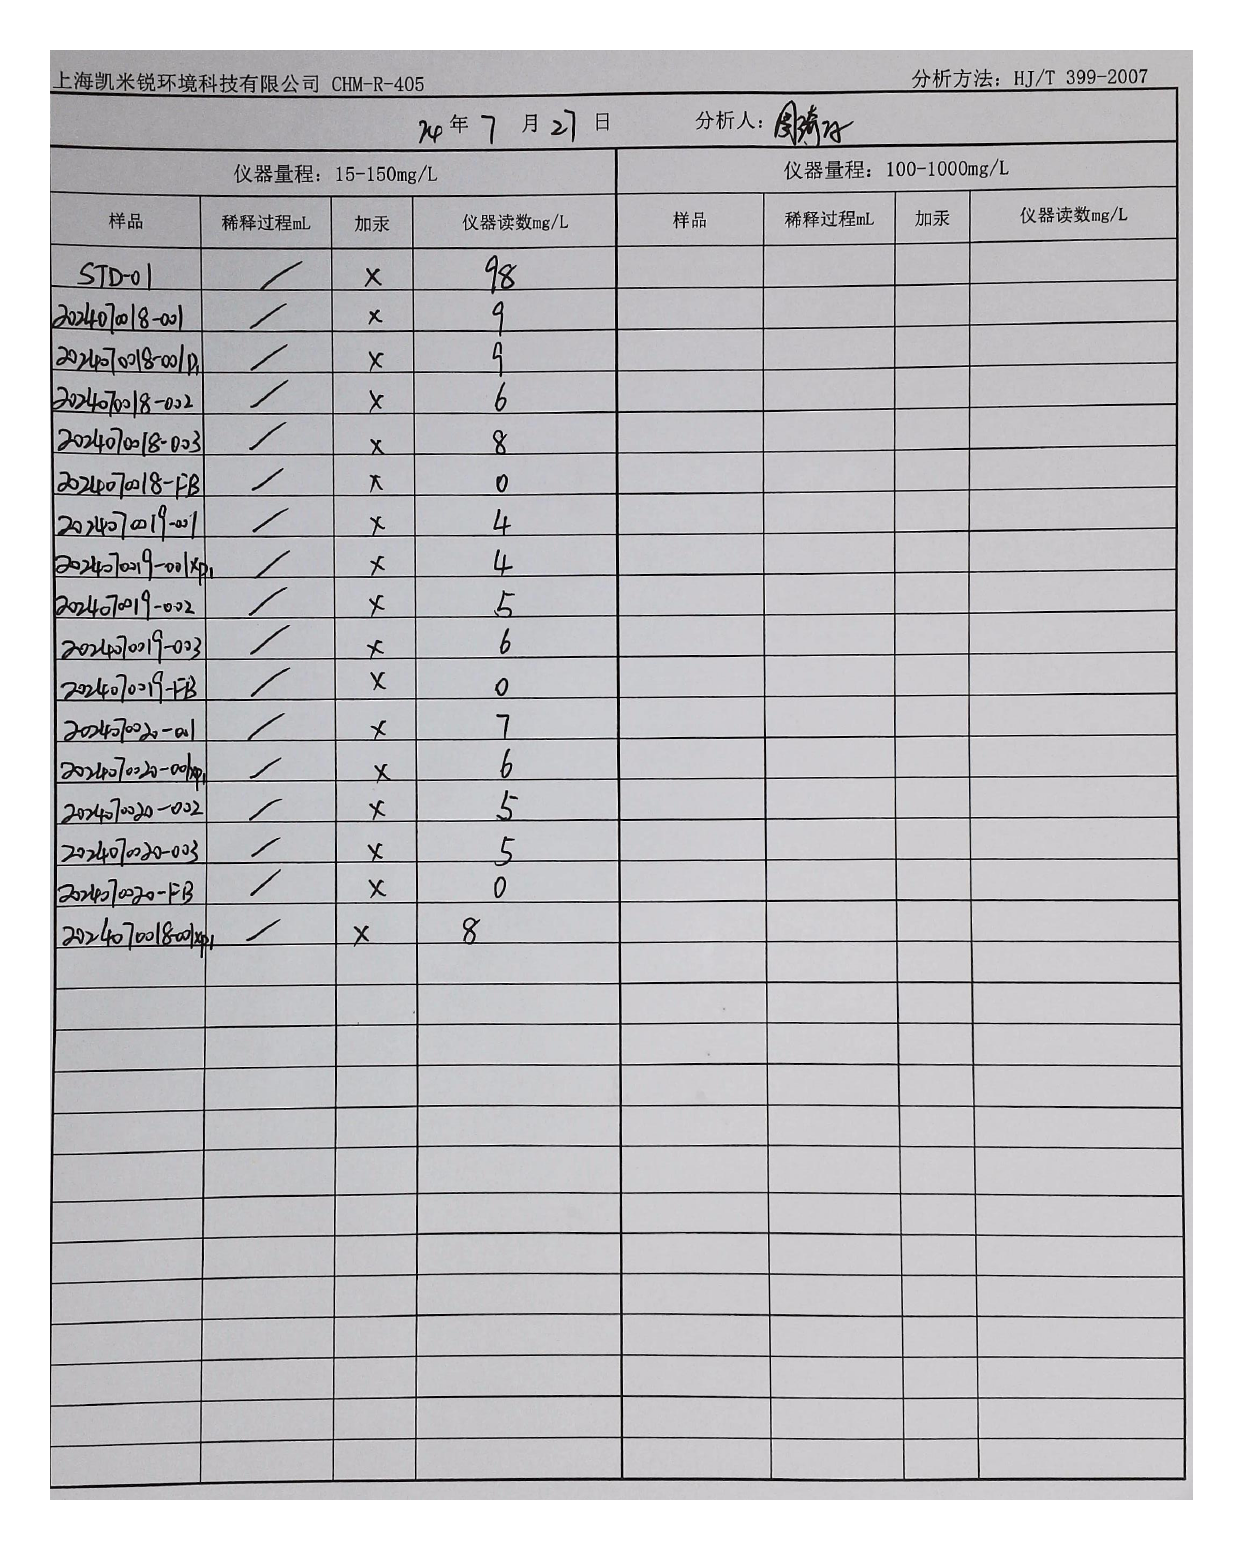 上海凯米锐环境科技有限公司 CHM-R-405 分析方法: HJ/T 399-2007
24 年 7 月 27 日 分析人:
仪器量程: 15-150mg/L 仪器量程: 100-1000mg/L
样品 稀释过程mL 加汞 仪器读数mg/L 样品 稀释过程mL 加汞 仪器读数mg/L
STD-01 / x 98
2024070018-001 / x 9
2024070018-001P1 / x 9
2024070018-002 / x 6
2024070018-003 / x 8
2024070018-FB / x 0
2024070019-001 / x 4
2024070019-001XP1 / x 4
2024070019-002 / x 5
2024070019-003 / x 6
2024070019-FB / x 0
2024070020-001 / x 7
2024070020-001XP1 / x 6
2024070020-002 / x 5
2024070020-003 / x 5
2024070020-FB / x 0
2024070018-001XP1 / x 8